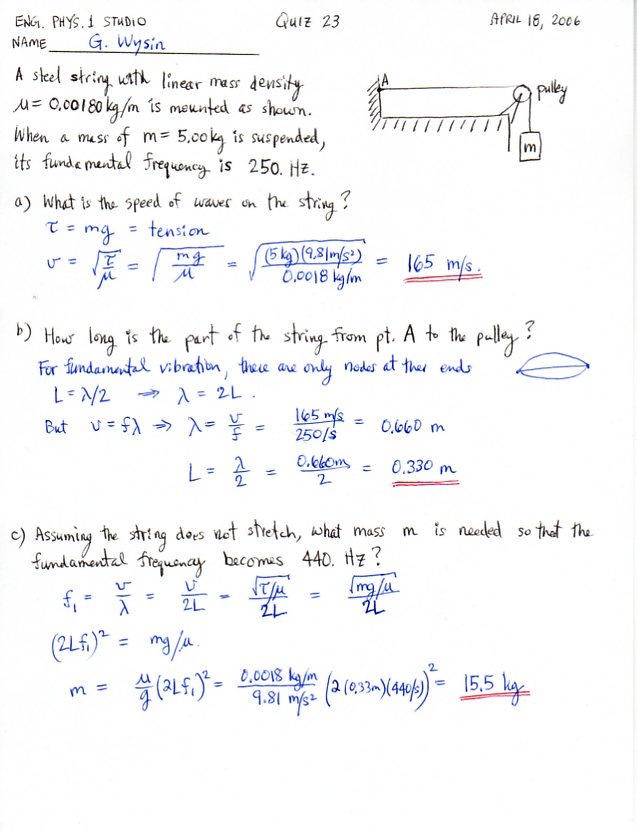 ENG. PHYS. 1 STUDIO QUIZ 23 APRIL 18, 2006
NAME G. Wysin
A steel string with linear mass density
μ = 0.00180 kg/m is mounted as shown.
When a mass of m = 5.00 kg is suspended,
its fundamental frequency is 250. Hz.
A
pulley
m
a) What is the speed of waves on the string?
τ = mg = tension
v = √(τ/μ) = √(mg/μ) = √((5 kg)(9.81 m/s²)/0.0018 kg/m) = 165 m/s.
b) How long is the part of the string from pt. A to the pulley?
For fundamental vibration, there are only nodes at ther ends
L = λ/2 ⇒ λ = 2L.
But v = fλ ⇒ λ = v/f = 165 m/s / 250/s = 0.660 m
L = λ/2 = 0.660m/2 = 0.330 m
c) Assuming the string does not stretch, what mass m is needed so that the
fundamental frequency becomes 440. Hz?
f₁ = v/λ = v/2L = √(τ/μ)/2L = √(mg/μ)/2L
(2Lf₁)² = mg/μ.
m = μ/g (2Lf₁)² = 0.0018 kg/m / 9.81 m/s² (2(0.33m)(440/s))² = 15.5 kg